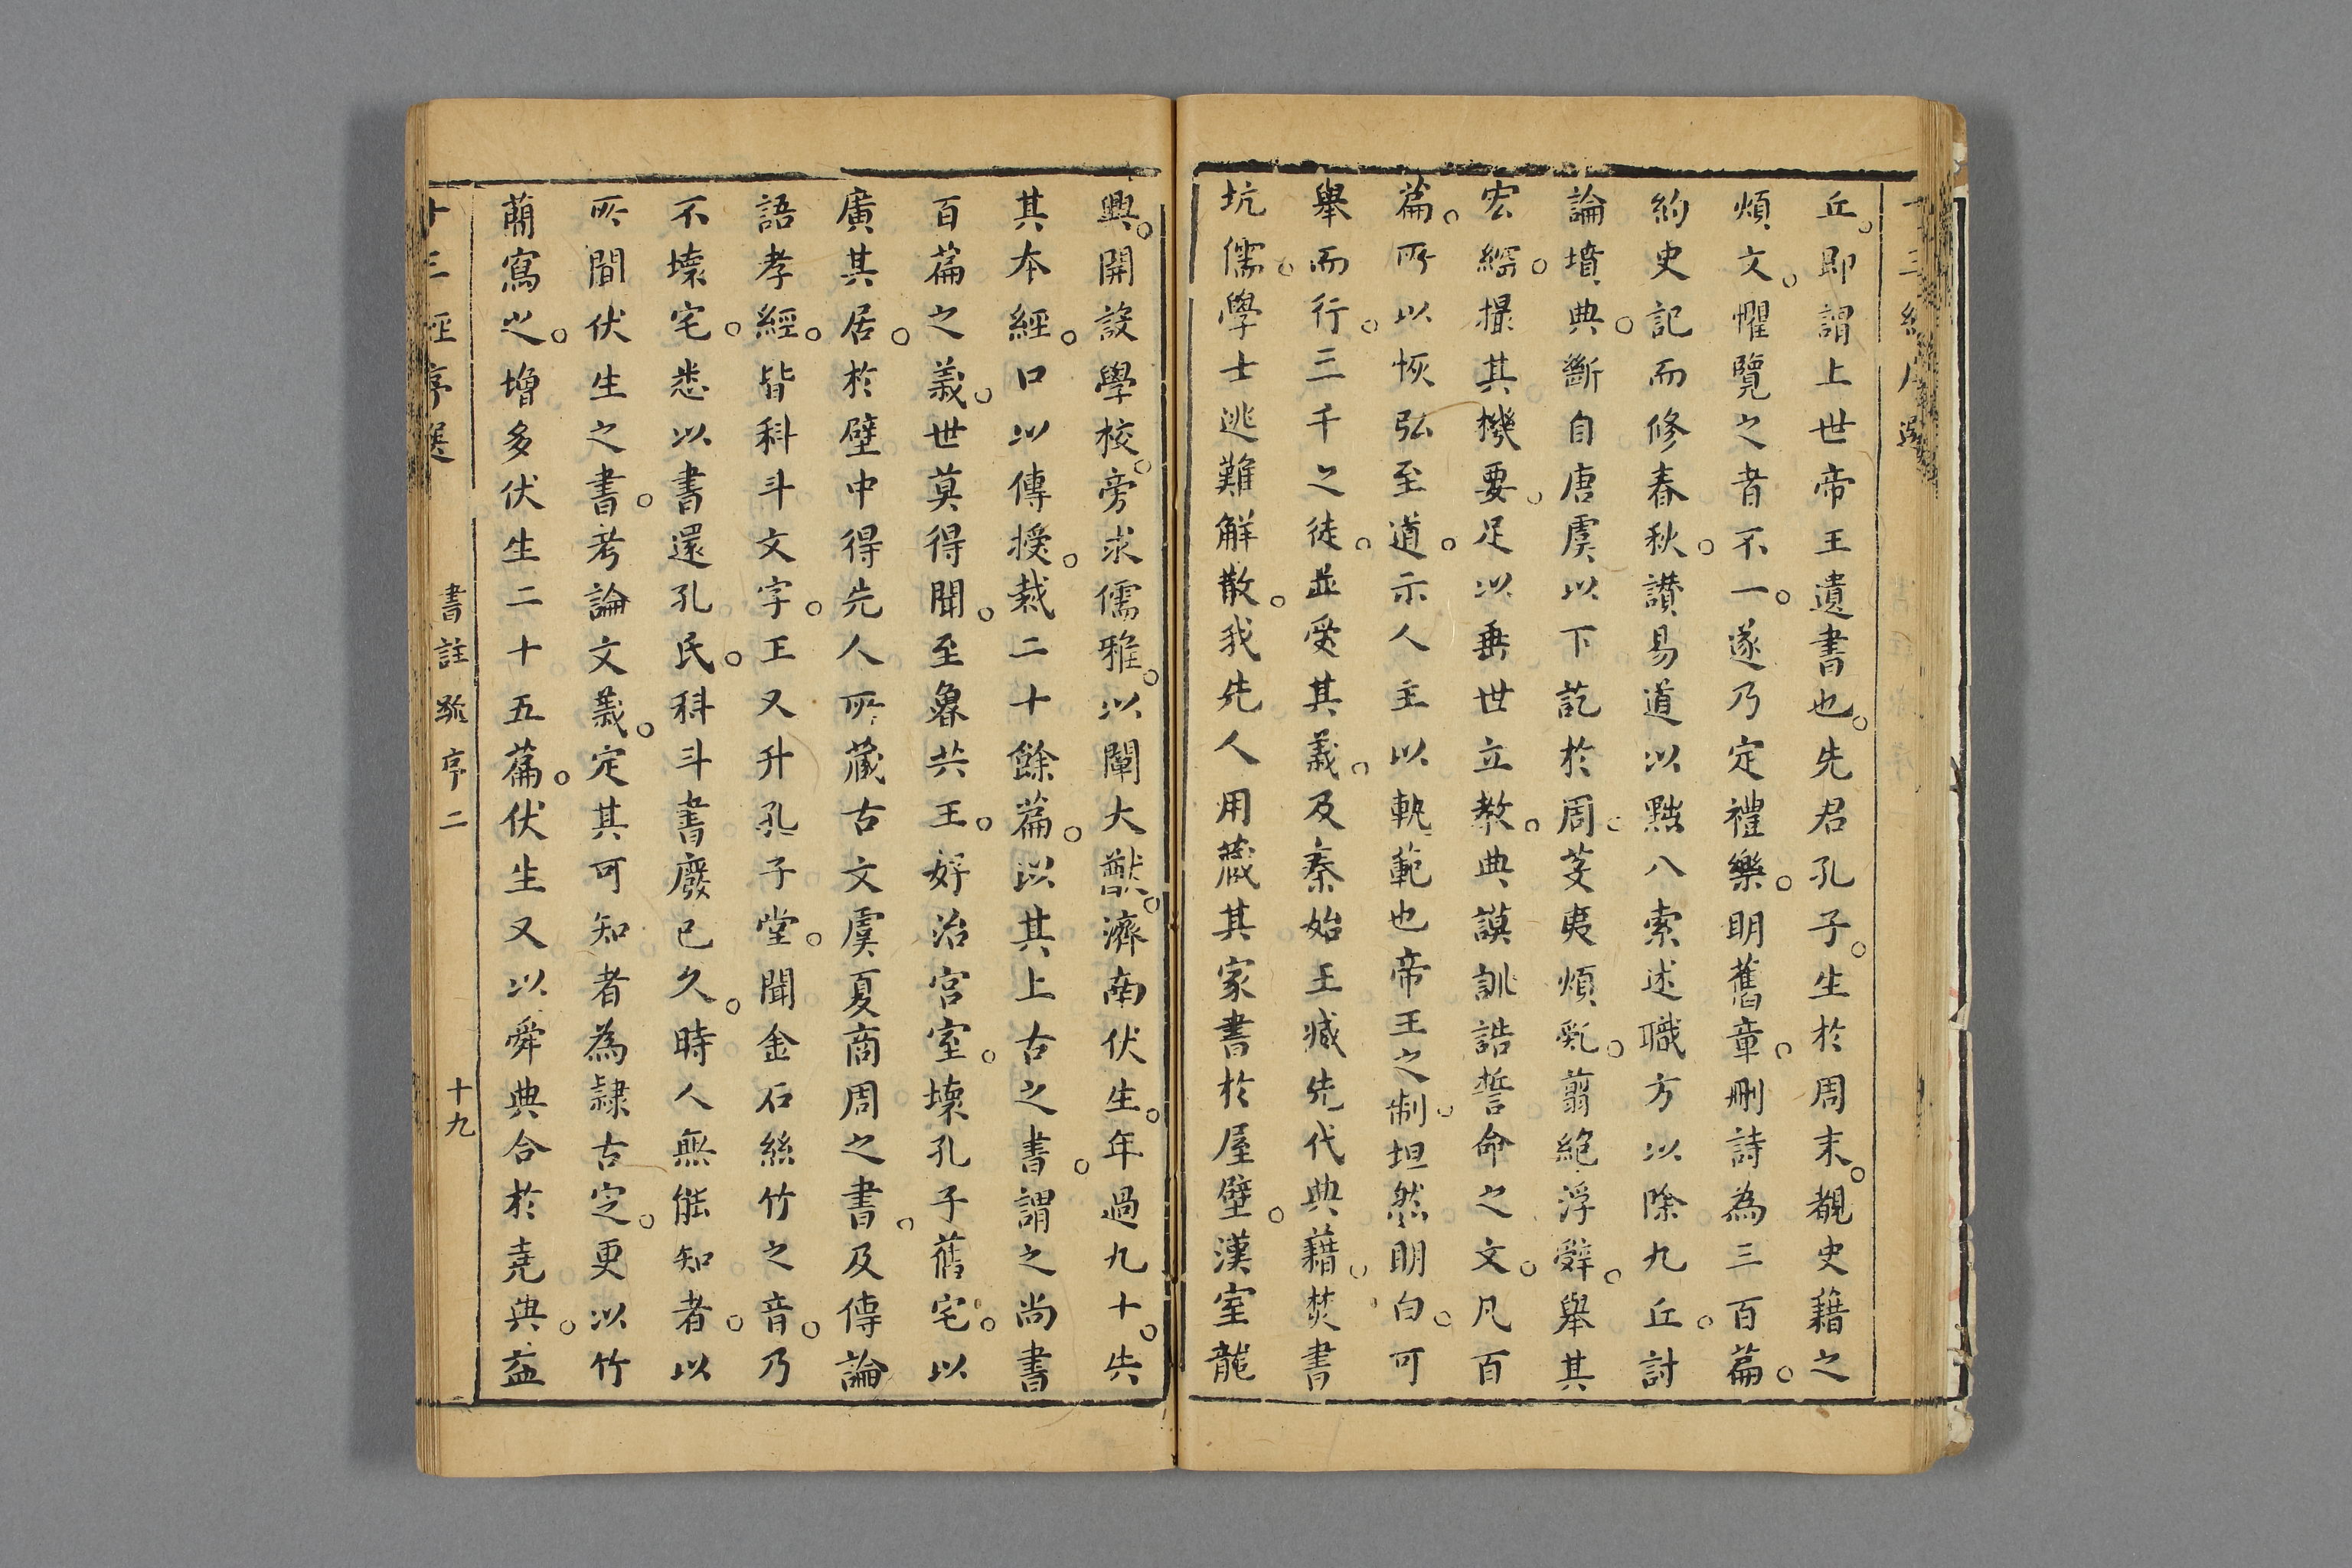 丘。即謂上世帝王遺書也。先君孔子。生於周末。覩史藉之
煩文。懼覽之者不一。遂乃定禮樂。明舊章。刪詩為三百篇。
約史記而修春秋。讃易道以黜八索述職方以除九丘。討
論墳典。斷自唐虞以下訖於周。芟夷煩亂。翦絶浮辭。舉其
宏綱。撮其機要。足以垂世立教。典謨訓誥誓命之文。凡百
篇。所以恢弘至道。示人主以軌範也帝王之制。坦然明白。可
舉而行。三千之徒。並受其義。及秦始王滅先代典藉。焚書
坑儒。學士逃難解散。我先人用藏其家書於屋壁。漢室龍
興。開設學校。旁求儒雅。以闡大猷。濟南伏生。年過九十。失
其本經。口以傳授。裁二十餘篇。以其上古之書。謂之尚書
百篇之義。世莫得聞。至魯共王。好治宮室。壞孔子舊宅。以
廣其居。於壁中得先人所藏古文虞夏商周之書。及傳論
語孝經。皆科斗文字。王又升孔子堂。聞金石絲竹之音。乃
不壞宅。悉以書還孔氏。科斗書廢已久。時人無能知者。以
所聞伏生之書。考論文義。定其可知者為隷古定。更以竹
蕳寫之。增多伏生二十五篇。伏生又以舜典合於堯典。益
十三經序選 書註疏序二 十九